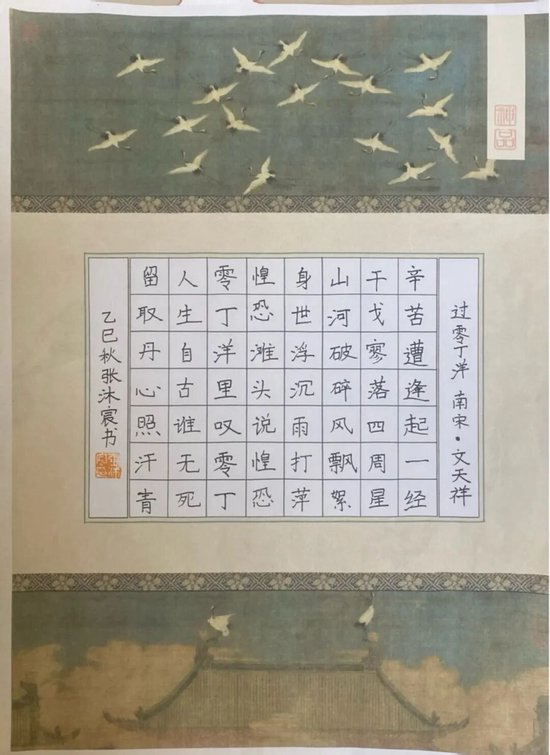 神品
过零丁洋 南宋·文天祥
辛苦遭逢起一经
干戈寥落四周星
山河破碎风飘絮
身世浮沉雨打萍
惶恐滩头说惶恐
零丁洋里叹零丁
人生自古谁无死
留取丹心照汗青
乙巳秋张沐宸书